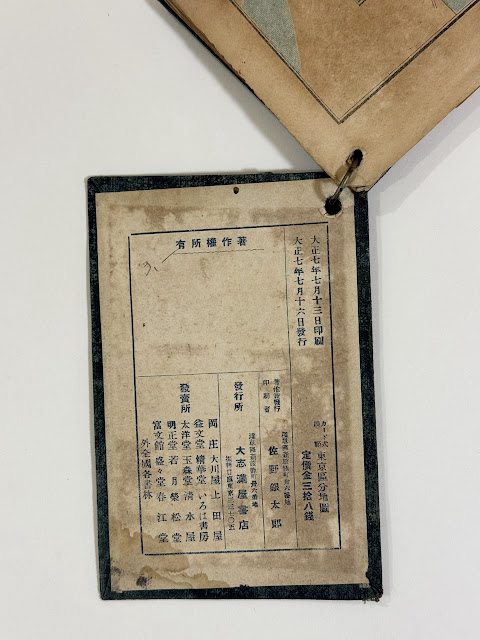 大正七年七月十三日印刷
大正七年七月十六日發行
著作權所有
カード式
東京區分地圖
定價金三拾八錢
印刷者
佐野銀太郎
發行所
大志滿屋書店
發賣所
岡庄 大川屋 上田屋
益文堂 精華堂 いろは書房
太洋堂 玉森堂 清水屋
明正堂 若月 榮松堂
富文館 盛々堂 春江堂
外全國各書林